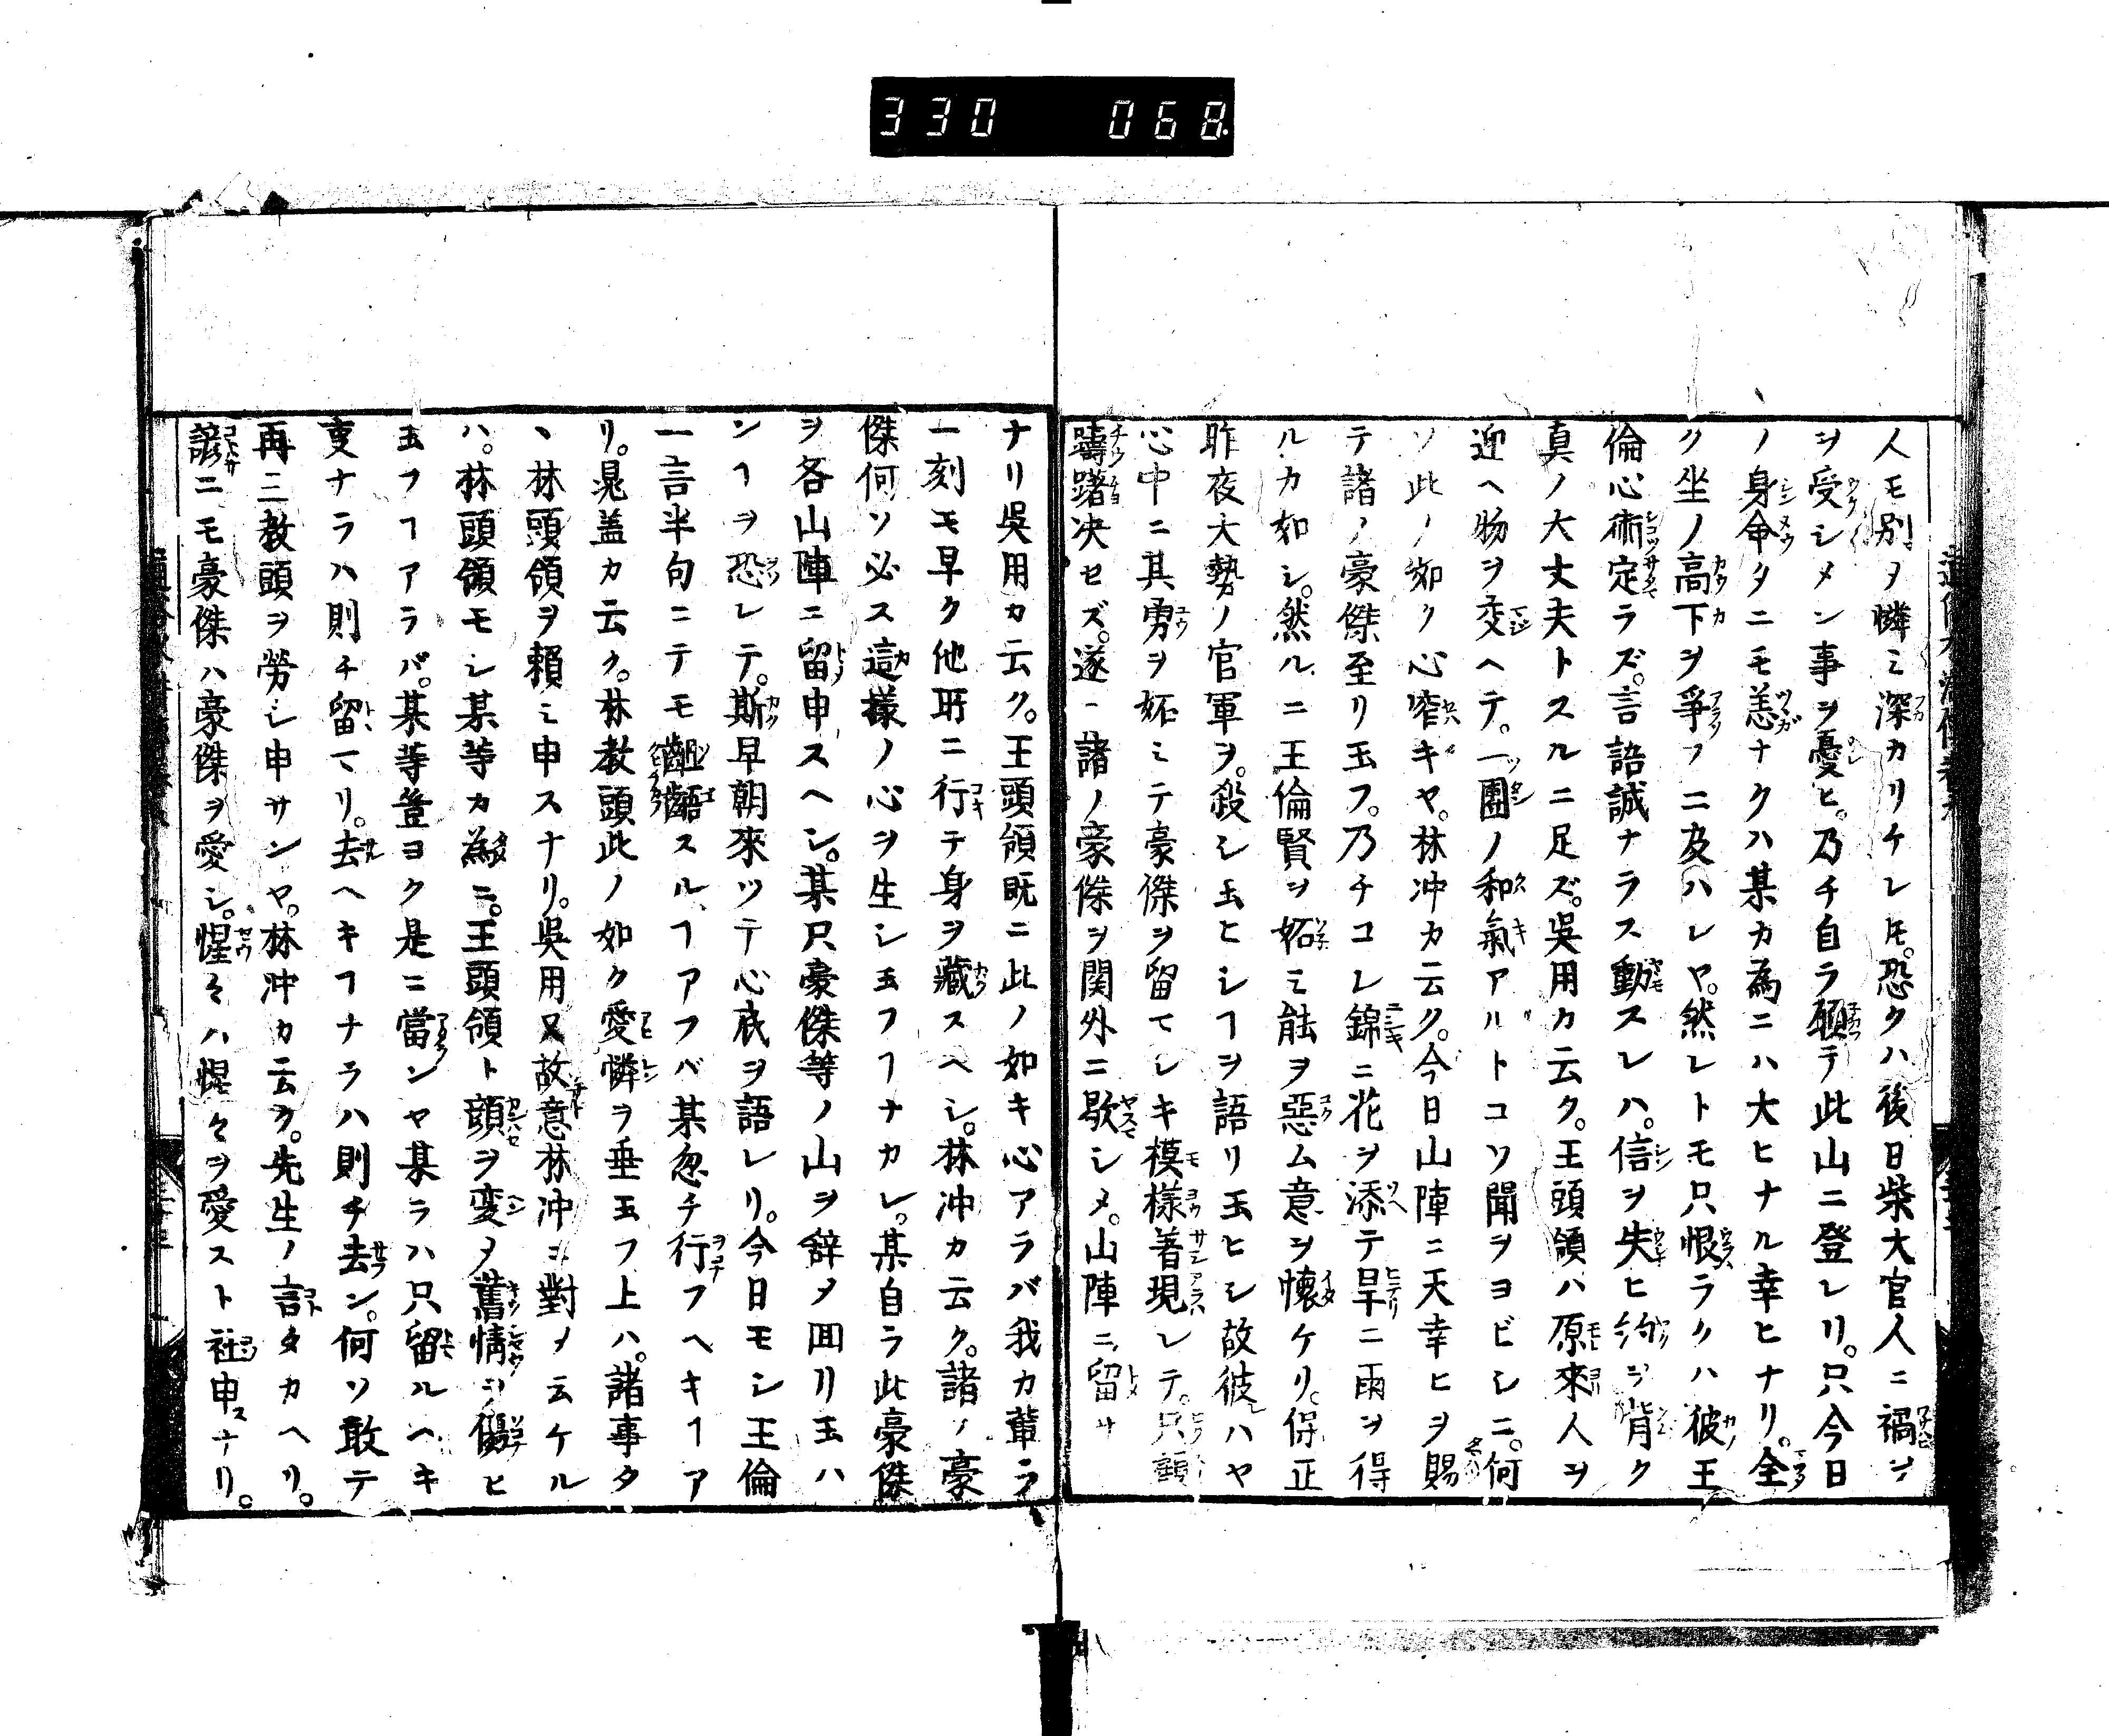 330 068
人モ別ヲ憐ミ深カリチレ𪜈。恐クハ後日柴大官人ニ禍ヲ
ヲ受シメン事ヲ憂ヒ。乃チ自ラ願テ此山ニ登レリ。只今日
ノ身命タニモ恙ナクハ某カ為ニハ大ヒナル幸ヒナリ。全
ク坐ノ高下ヲ爭フニ及ハレヤ。然レトモ只恨ラクハ彼王
倫心術定ラズ。言語誠ナラス動スレハ。信ヲ失ヒ約ヲ背ク
真ノ大丈夫トスルニ足ズ。吳用カ云ク。王頭領ハ原來人ヲ
迎ヘ物ヲ交ヘテ。一團ノ和氣アルトコソ聞ヲヨビシニ。何
ソ此ノ如ク心窄キヤ。林冲カ云ク。今日山陣ニ天幸ヒヲ賜
テ諸ノ豪傑至リ玉フ。乃チコレ錦ニ花ヲ添テ旱ニ雨ヲ得
ルカ如シ。然ルニ王倫賢ヲ妬ミ能ヲ惡ム意ヲ懐ケリ。保正
昨夜大勢ノ官軍ヲ。殺シ玉ヒシヿヲ語リ玉ヒシ故彼ハヤ
心中ニ其勇ヲ妬ミテ豪傑ヲ留マシキ模様著現レテ。只顧
躊躇决セズ。遂ニ諸ノ豪傑ヲ関外ニ歇シメ。山陣ニ留サ
ナリ吳用カ云ク。王頭領既ニ此ノ如キ心アラバ我カ輩ラ
一刻モ早ク他所ニ行テ身ヲ藏スヘシ。林冲カ云ク。諸ノ豪
傑何ソ必ス這様ノ心ヲ生シ玉フヿナカレ。某自ラ此豪傑
ヲ各山陣ニ留申スヘシ。某只豪傑等ノ山ヲ辞メ囬リ玉ハ
ンヿヲ恐レテ。斯早朝來ツテ心底ヲ語レリ。今日モシ王倫
一言半句ニテモ齟齬スルヿアフバ某忽チ行フヘキヿア
リ。晁盖カ云ク。林教頭此ノ如ク愛憐ヲ垂玉フ上ハ。諸事タ
丶林頭領ヲ頼ミ申スナリ。吳用又故意林冲ニ對ノ云ケル
ハ。林頭領モシ某等カ為ニ。王頭領ト顔ヲ変ノ舊情ヲ傷ヒ
玉フヿアラバ。某等豈ヨク是ニ當ンヤ某ラハ只留ルヘキ
叓ナラハ則チ留マリ。去ヘキヿナラハ則チ去ン。何ソ敢テ
再三教頭ヲ勞シ申サンヤ。林冲カ云ク。先生ノ言タカヘリ。
諺ニモ豪傑ハ豪傑ヲ愛シ。惺々ハ惺々ヲ愛スト社申スナリ。